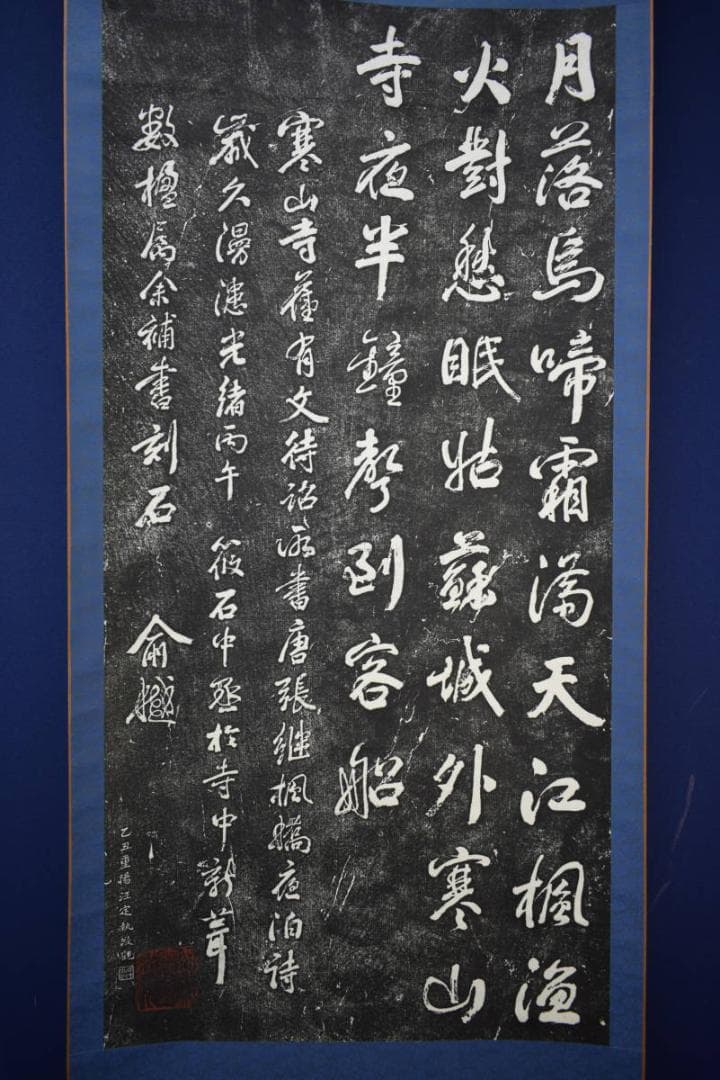 月落烏啼霜滿天江楓漁
火對愁眠姑蘇城外寒山
寺夜半鐘聲到客船
寒山寺舊有文待詔所書唐張繼楓橋夜泊詩
歲久漫漶光緒丙午 筱石中丞於寺中新葺
數楹屬余補書刻石 俞樾
乙丑重摹汪定執敬觀